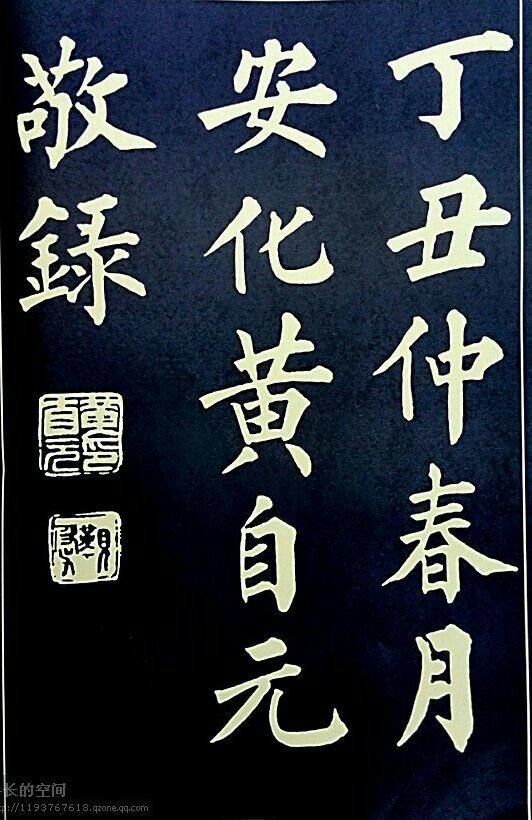 丁丑仲春月
安化黄自元
敬録
黄自元印
長的空间
p://1193767618.qzone.qq.com